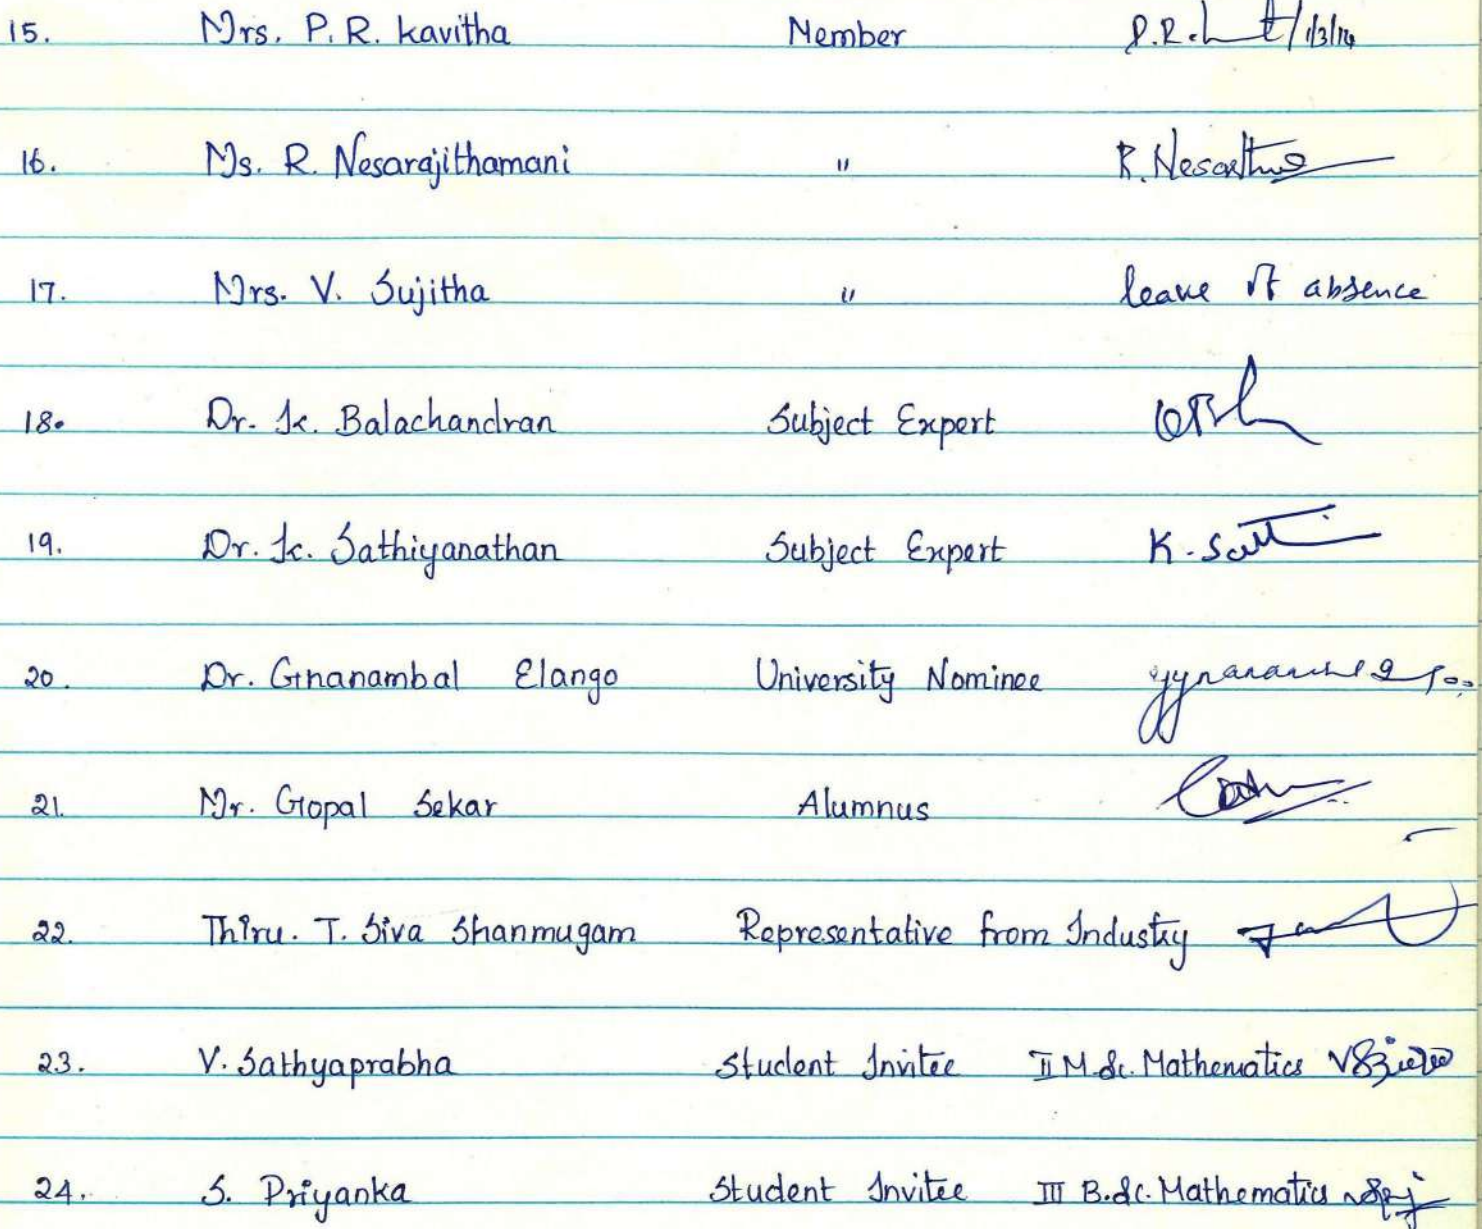 15. Mrs. P. R. Kavitha Member P.R. 1/3/14
16. Ms. R. Nesarajithamani " R. Nesa
17. Mrs. V. Sujitha " leave of absence
18. Dr. K. Balachandran Subject Expert
19. Dr. K. Sathiyanathan Subject Expert K. Satt
20. Dr. Gnanambal Elango University Nominee
21. Mr. Gopal Sekar Alumnus
22. Thiru. T. Siva Shanmugam Representative from Industry
23. V. Sathyaprabha Student Invitee II M.Sc. Mathematics
24. S. Priyanka Student Invitee III B.Sc. Mathematics